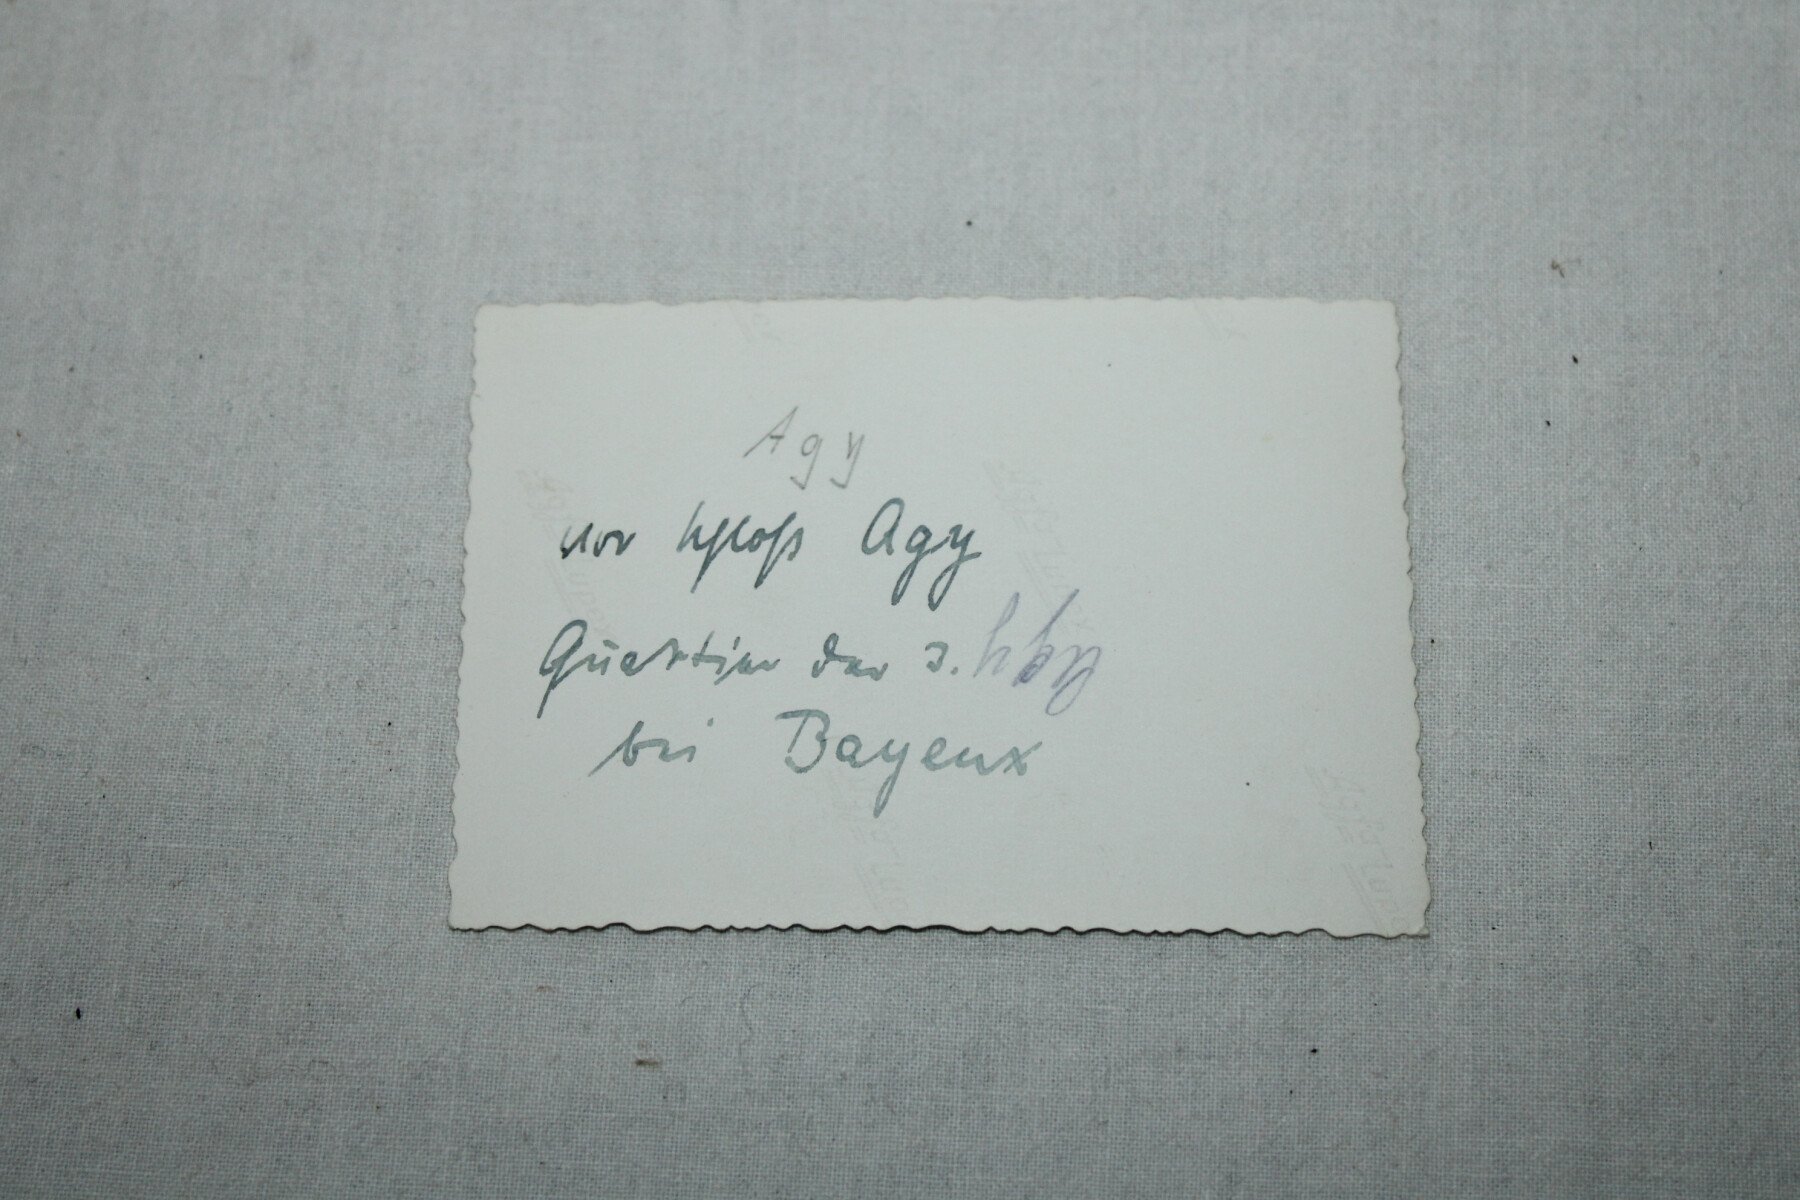 Agy
vor Schloß Agy
Quartier der 3.
bei Bayeux